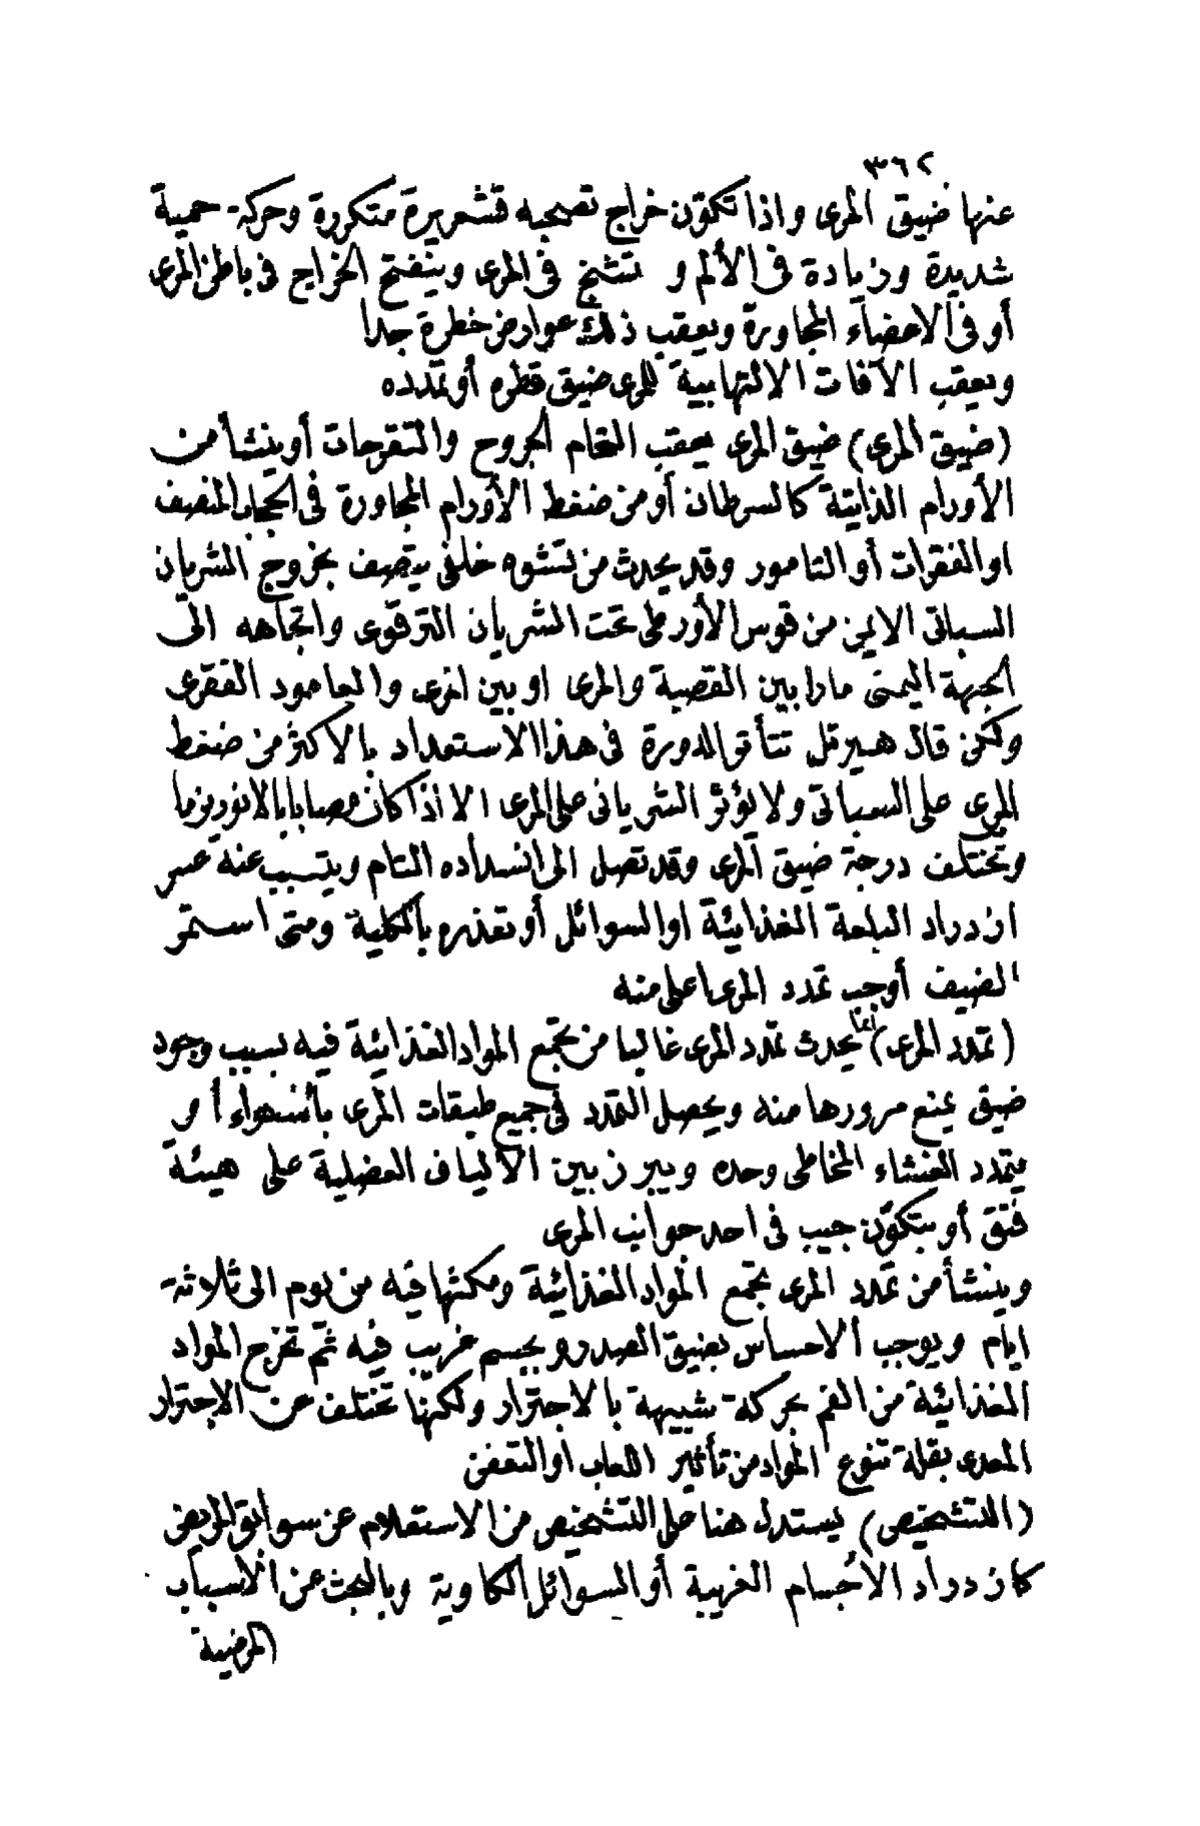 ٣٦٢
عنها ضيق المرى واذا تكوّن خراج تصحبه قشعريرة متكررة وحركة حمية
شديدة وزيادة فى الألم و تشنج فى المرى وينفتح الخراج فى باطن المرى
أو فى الاعضاء المجاورة ويعقب ذلك عوارض خطرة جدا
ويعقب الآفات الالتهابية للمرى ضيق قطره أو تمدده
(ضيق المرى) ضيق المرى يعقب التحام الجروح والتقرحات أو ينشأ من
الأورام الذاتية كالسرطان أو من ضغط الأورام المجاورة فى الحجاب المنصف
او الفقرات أو التامور وقد يحدث من تشوه خلقى يتصف بخروج الشريان
السباتى الايمن من قوس الأورطى تحت الشريان الترقوى واتجاهه الى
الجهة اليمنى مارا بين القصبة والمرى او بين المرى والعامود الفقرى
ولكن قال هيرتل تتأتى الدورة فى هذا الاستعداد بالاكثر من ضغط
المرى على السباتى ولا يؤثر الشريانى على المرى الا اذا كان مصابا بالانوريزما
وتختلف درجة ضيق المرى وقد تصل الى انسداده التام ويتسبب عنه عسر
ازدراد البلعة الغذائية او السوائل أو تعذره بالكلية ومتى استمر
الضيق أوجب تمدد المرى اعلى منه
(تمدد المرى) يحدث تمدد المرى غالبا من تجمع المواد الغذائية فيه بسبب وجود
ضيق يمنع مرورها منه ويحصل التمدد فى جميع طبقات المرى بالسواء أو
يتمدد الغشاء المخاطى وحده ويبرز بين الألياف العضلية على هيئة
فتق أو يتكوّن جيب فى احد جوانب المرى
وينشأ من تمدد المرى تجمع المواد الغذائية ومكثها فيه من يوم الى ثلاثة
ايام ويوجب الاحساس بضيق الصدر وبجسم غريب فيه ثم تخرج المواد
الغذائية من الفم بحركة شبيهة بالاجترار ولكنها تختلف عن الاجترار
المعدى بقلة تنوع المواد من تأثير اللعاب او التعفن
(التشخيص) يستدل هنا على التشخيص من الاستعلام عن سوابق المريض
كازدراد الأجسام الغريبة أو السوائل الكاوية وبالبحث عن الأسباب
المرضية